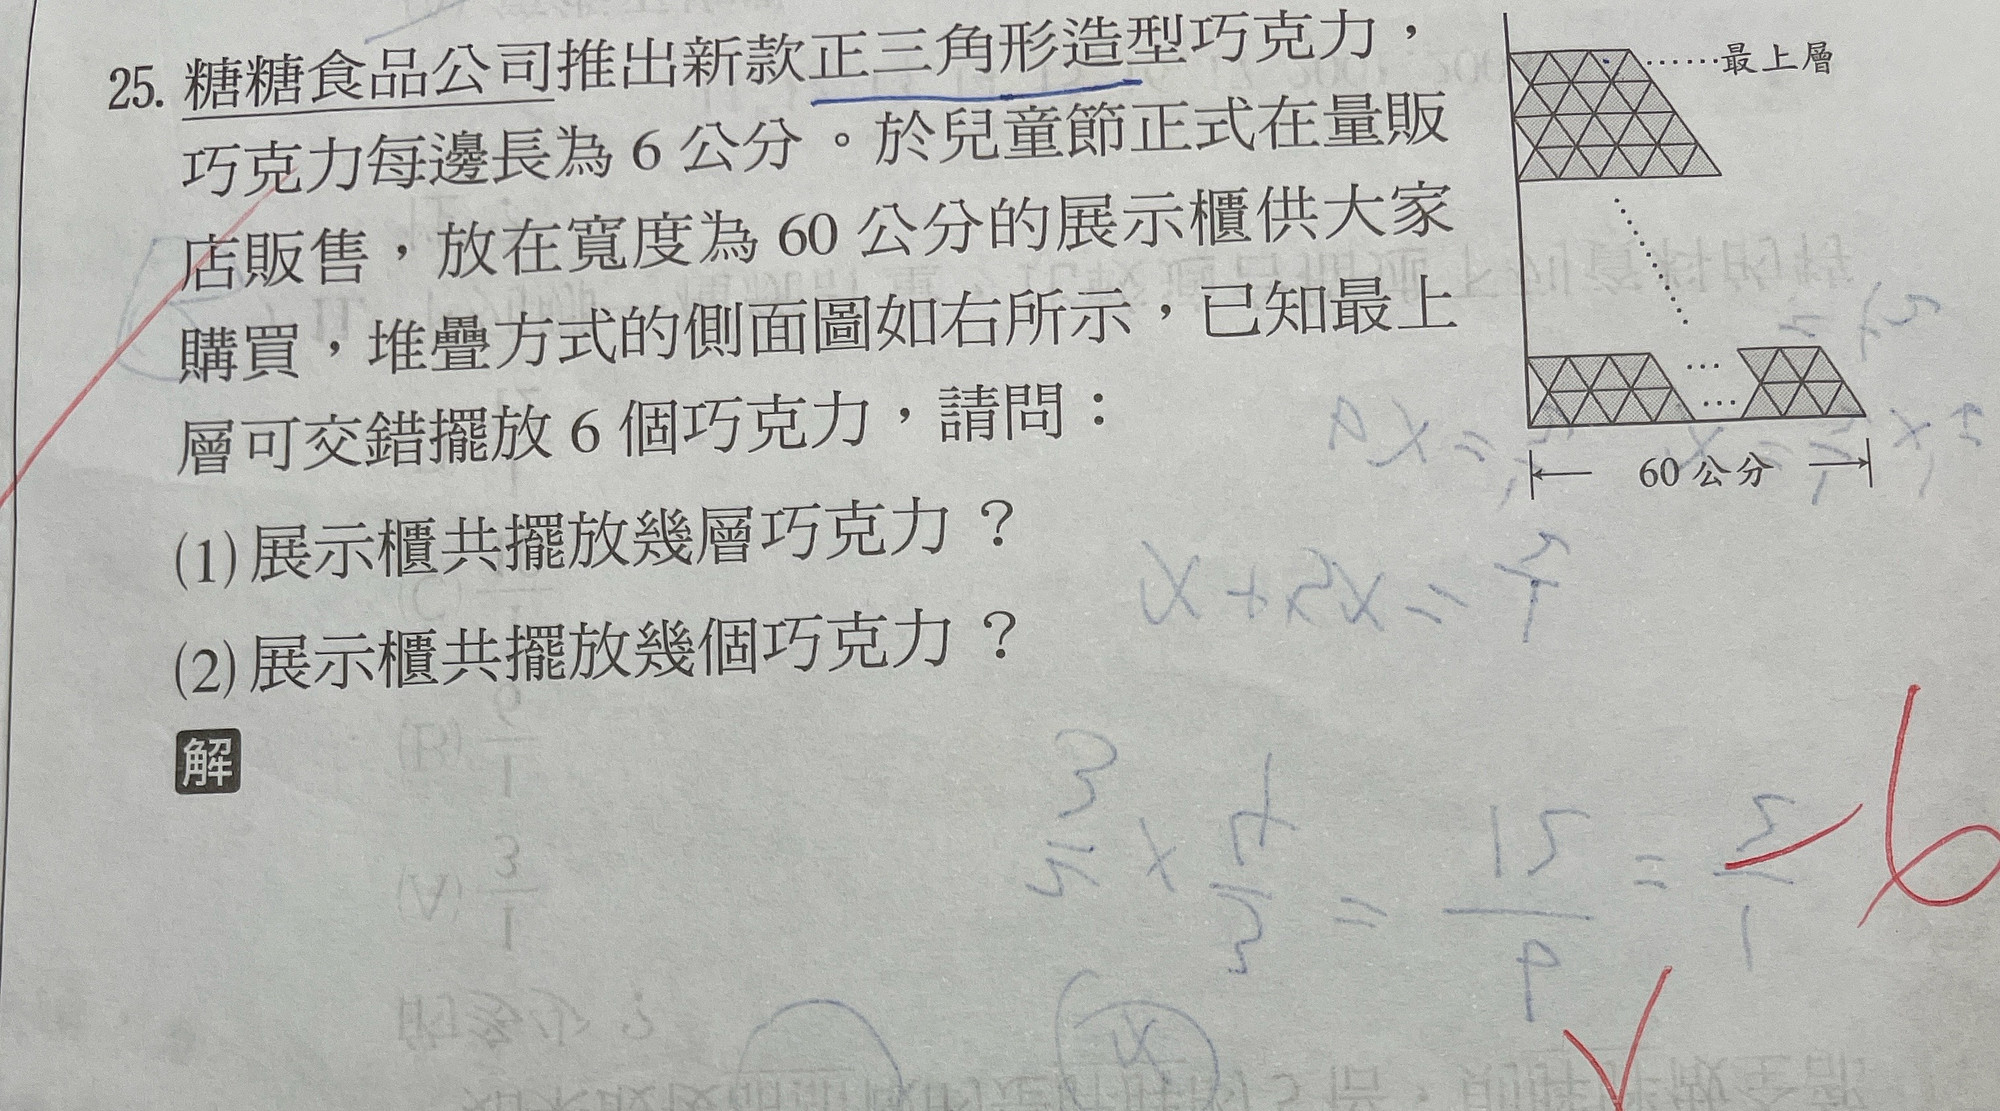 25. 糖糖食品公司推出新款正三角形造型巧克力，
巧克力每邊長為 6 公分。於兒童節正式在量販
店販售，放在寬度為 60 公分的展示櫃供大家
購買，堆疊方式的側面圖如右所示，已知最上
層可交錯擺放 6 個巧克力，請問：
(1) 展示櫃共擺放幾層巧克力？
(2) 展示櫃共擺放幾個巧克力？
解
……最上層
60 公分
-6